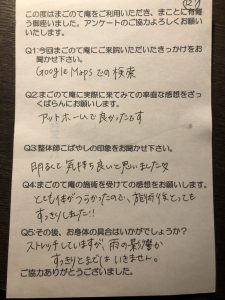 この度はまごのて庵をご利用いただき、まことに有難
う御座いました。アンケートのご協力よろしくお願い
いたします。
Q1:今回まごのて庵にご来院いただいたきっかけをお
聞かせ下さい。
Google Mapsでの検索
Q2:まごのて庵に実際に来てみての率直な感想をざっ
くばらんにお願いします。
アットホームで良かったです
Q3:整体師こばやしの印象をお聞かせ下さい。
明るくて気持ち良いと思いました
Q4:まごのて庵の施術を受けての感想をお願いします。
とても体がつらかったので、施術後とっても
すっきりしました!!
Q5:その後、お身体の具合はいかがでしょうか?
ストレッチしていますが、雨の影響か
すっきりとまでは いきません。
ご協力ありがとうございました。